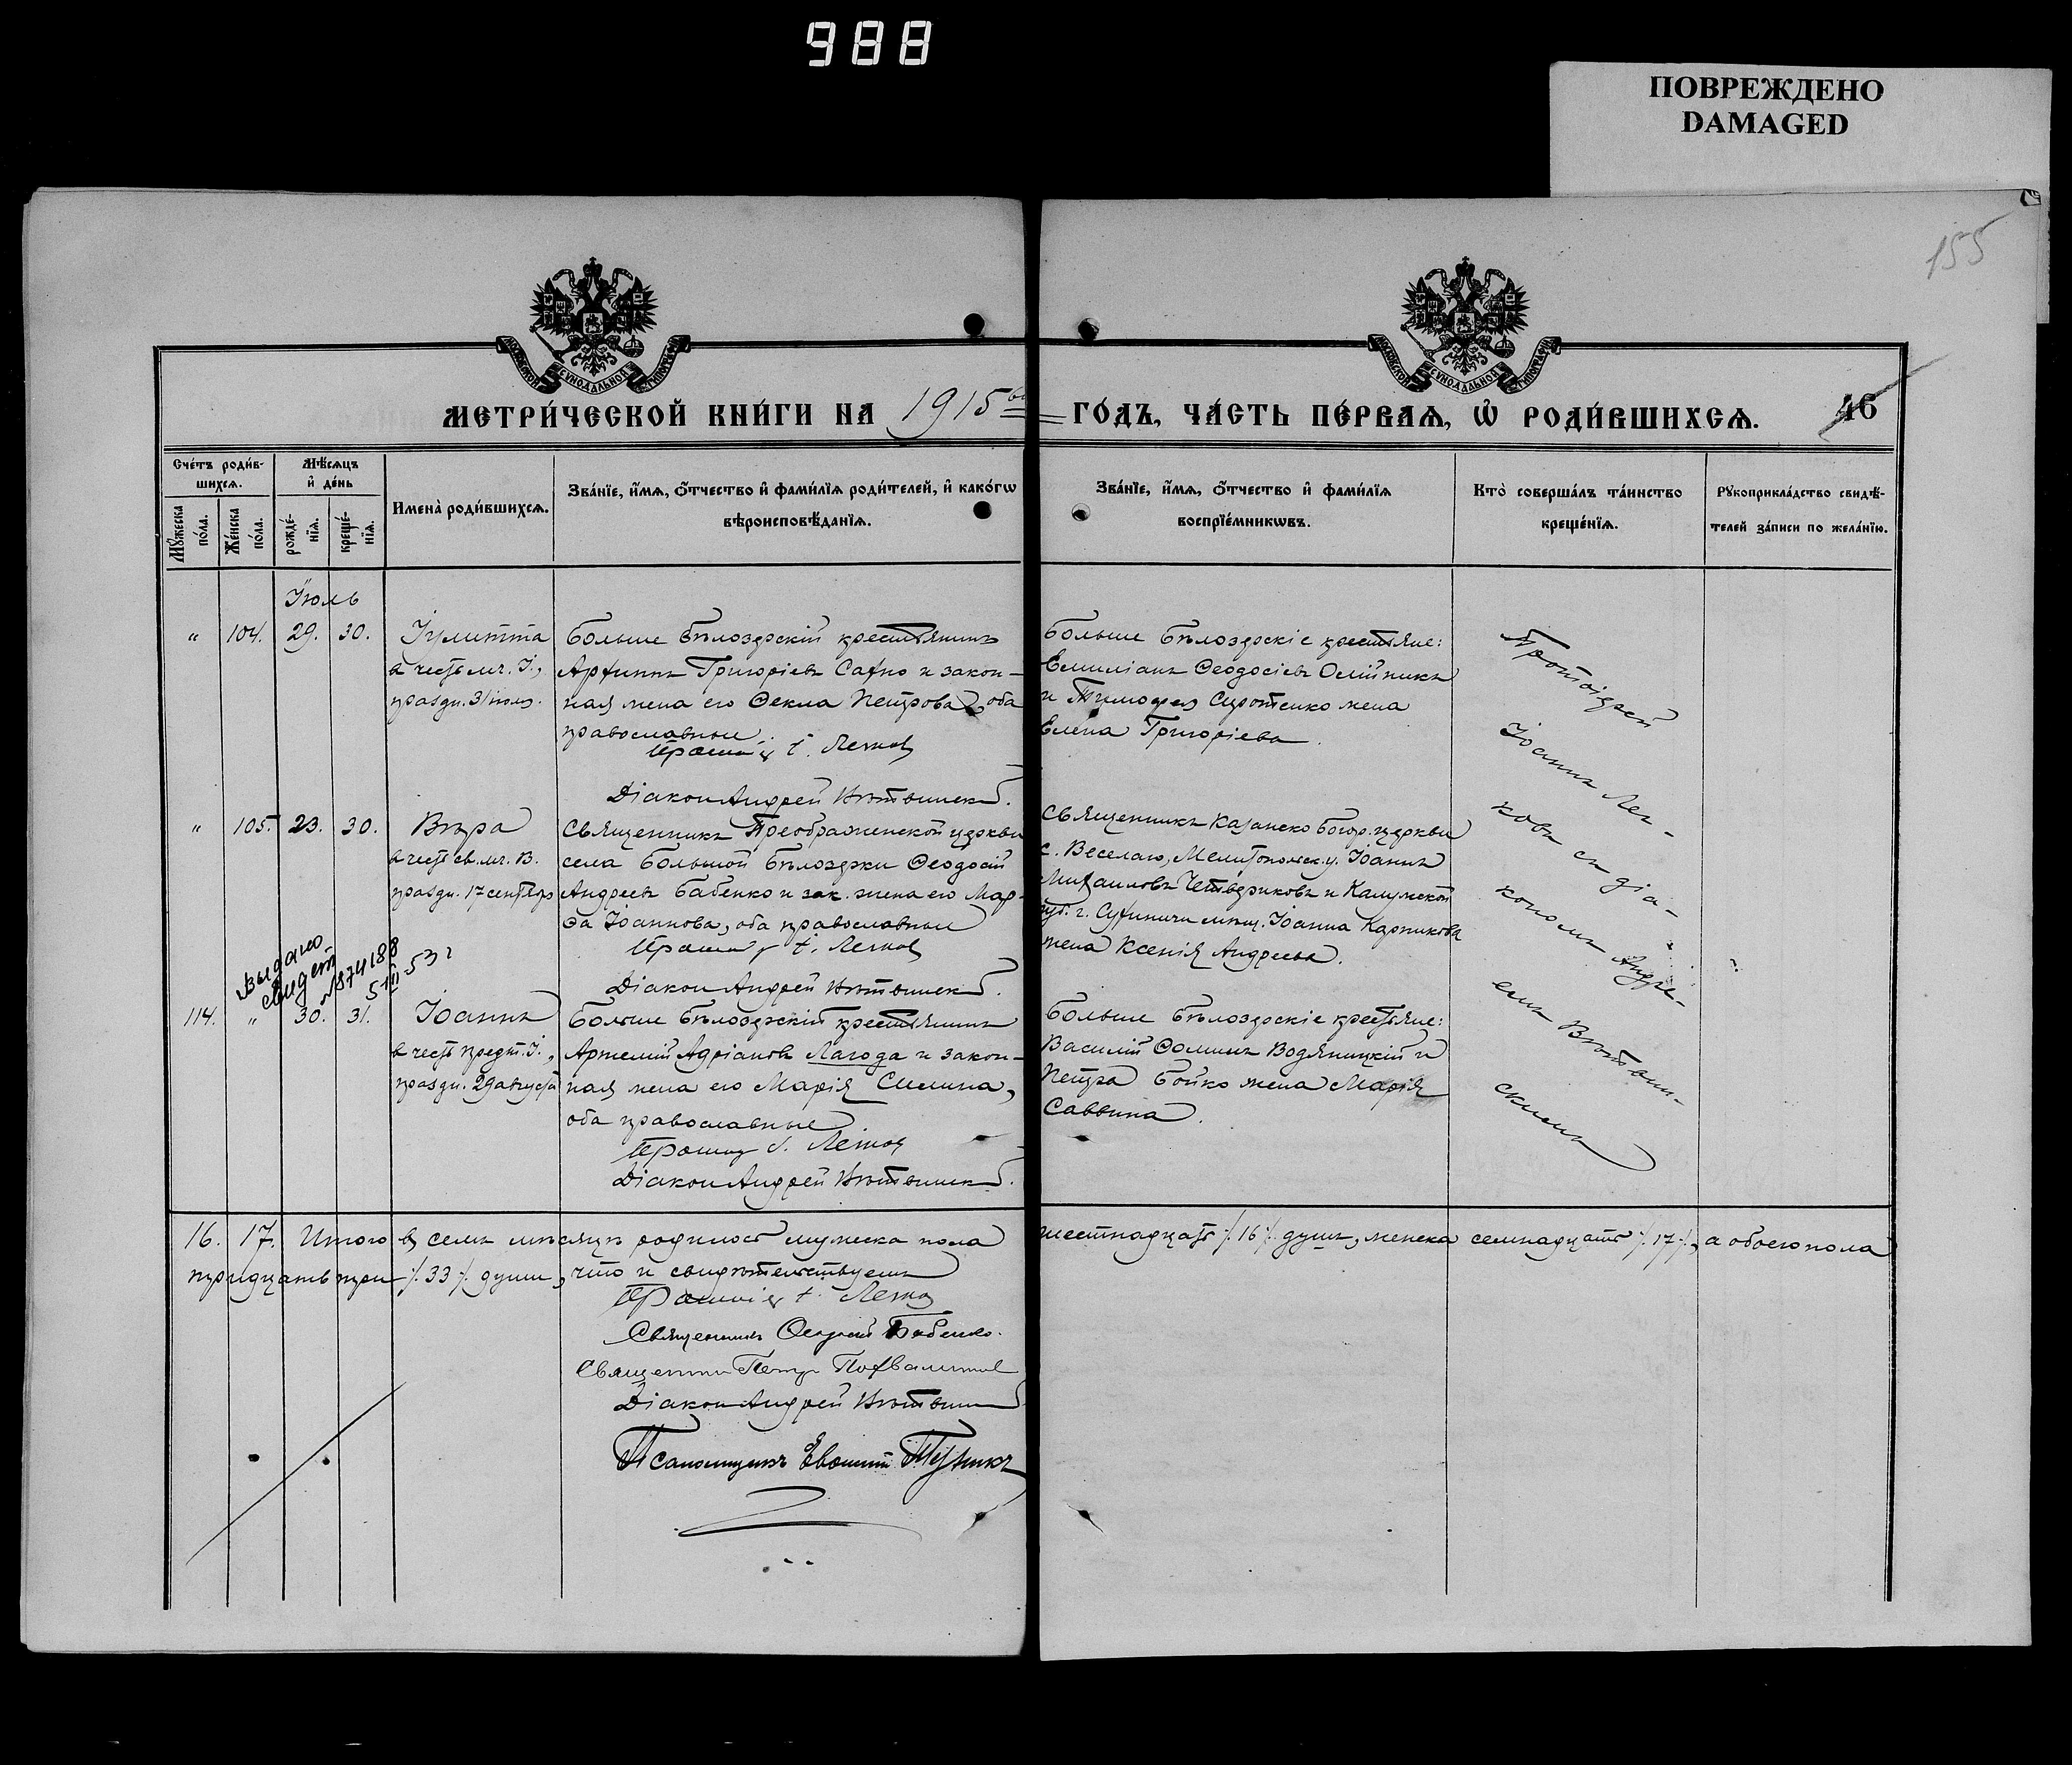 988
ПОВРЕЖДЕНО
DAMAGED
155
МОСКОВСКОЙ СѴНОДАЛЬНОЙ ТИПОГРАФІИ
МОСКОВСКОЙ СѴНОДАЛЬНОЙ ТИПОГРАФІИ
МЕТРИ́ЧЕСКОЙ КНИ́ГИ НА 1915ый
ГО́ДЪ, ЧА́СТЬ ПЕ́РВАЯ, Ѡ РОДИ́ВШИХСЯ. 46
Сче́тъ роди́в-
шихся.
Мѣ́сяцъ
и де́нь
Мꙋ́жеска по́ла.
Же́нска по́ла.
рожде́-
нїя.
креще́-
нїя.
Имена̀ роди́вшихся.
Зва́нїе, и́мя, о́тчество и фами́лїя роди́телей, и како́гѡ
вѣроисповѣ́данїя.
Зва́нїе, и́мя, о́тчество и фами́лїя
воспрїе́мникѡвъ.
Кто̀ соверша́лъ та́инство
креще́нїя.
Рꙋкоприкла́дство свидѣ́-
телей за́писи по жела́нїю.
Іюль
" 104. 29. 30. Іулитта
в честь мч. І.,
праздн. 31 іюля.
Больше Бѣлозерскій крестьянинъ
Архиппъ Григоріевъ Сахно и закон-
ная жена его Ѳекла Петрова, оба
православные.
Протоіер. І. Ленков
Діакон Андрей Вѣтвинск
Больше Бѣлозерскіе крестьяне:
Емиліанъ Ѳеодосіевъ Олійникъ
и Тимофея Сиротенко жена
Елена Григоріева.
Протоіерей
Іоаннъ Лен-
ковъ съ діа-
кономъ Андре-
емъ Вѣтвин-
скимъ
" 105. 23. 30. Вѣра
в честь св. мч. В.
праздн. 17 сентябр
Священникъ Преображенской церкви
села Большой Бѣлозерки Ѳеодосій
Андреевъ Бабенко и зак. жена его Мар-
ѳа Іоаннова, оба православные
Діакон Андрей Вѣтвинск
Священникъ Казанско Богор. церкви
с. Веселаго, Мелитопольск. у. Іоаннъ
Михаиловъ Четвериковъ и Калужской
губ. г. Сухиничи мѣщ. Іоанна Карпикова
жена Ксенія Андреева.
Выдано
свидет
№874188
5-III-53г
114. " 30. 31. Іоаннъ
в честь предт. І.,
праздн. 29 августа
Больше Бѣлозерскій крестьянинъ
Артемій Адріановъ Лагода и закон-
ная жена его Марія Симина,
оба православные
Діакон Андрей Вѣтвинск
Больше Бѣлозерскіе крестьяне:
Василій Ѳоминъ Водяницкій и
Петра Бойко жена Марія
Саввина.
16. 17. Итого въ семъ мѣсяцѣ родилось мужеска пола шестнадцать /.16/. душъ, женска семнадцать /.17/., а обоего пола
тридцать три /.33/. души, что и свидѣтельствуемъ
Священникъ Ѳеодосій Бабенко.
Священник Петр Похвалитов
Діакон Андрей Вѣтвин
Псаломщикъ Евѳимій